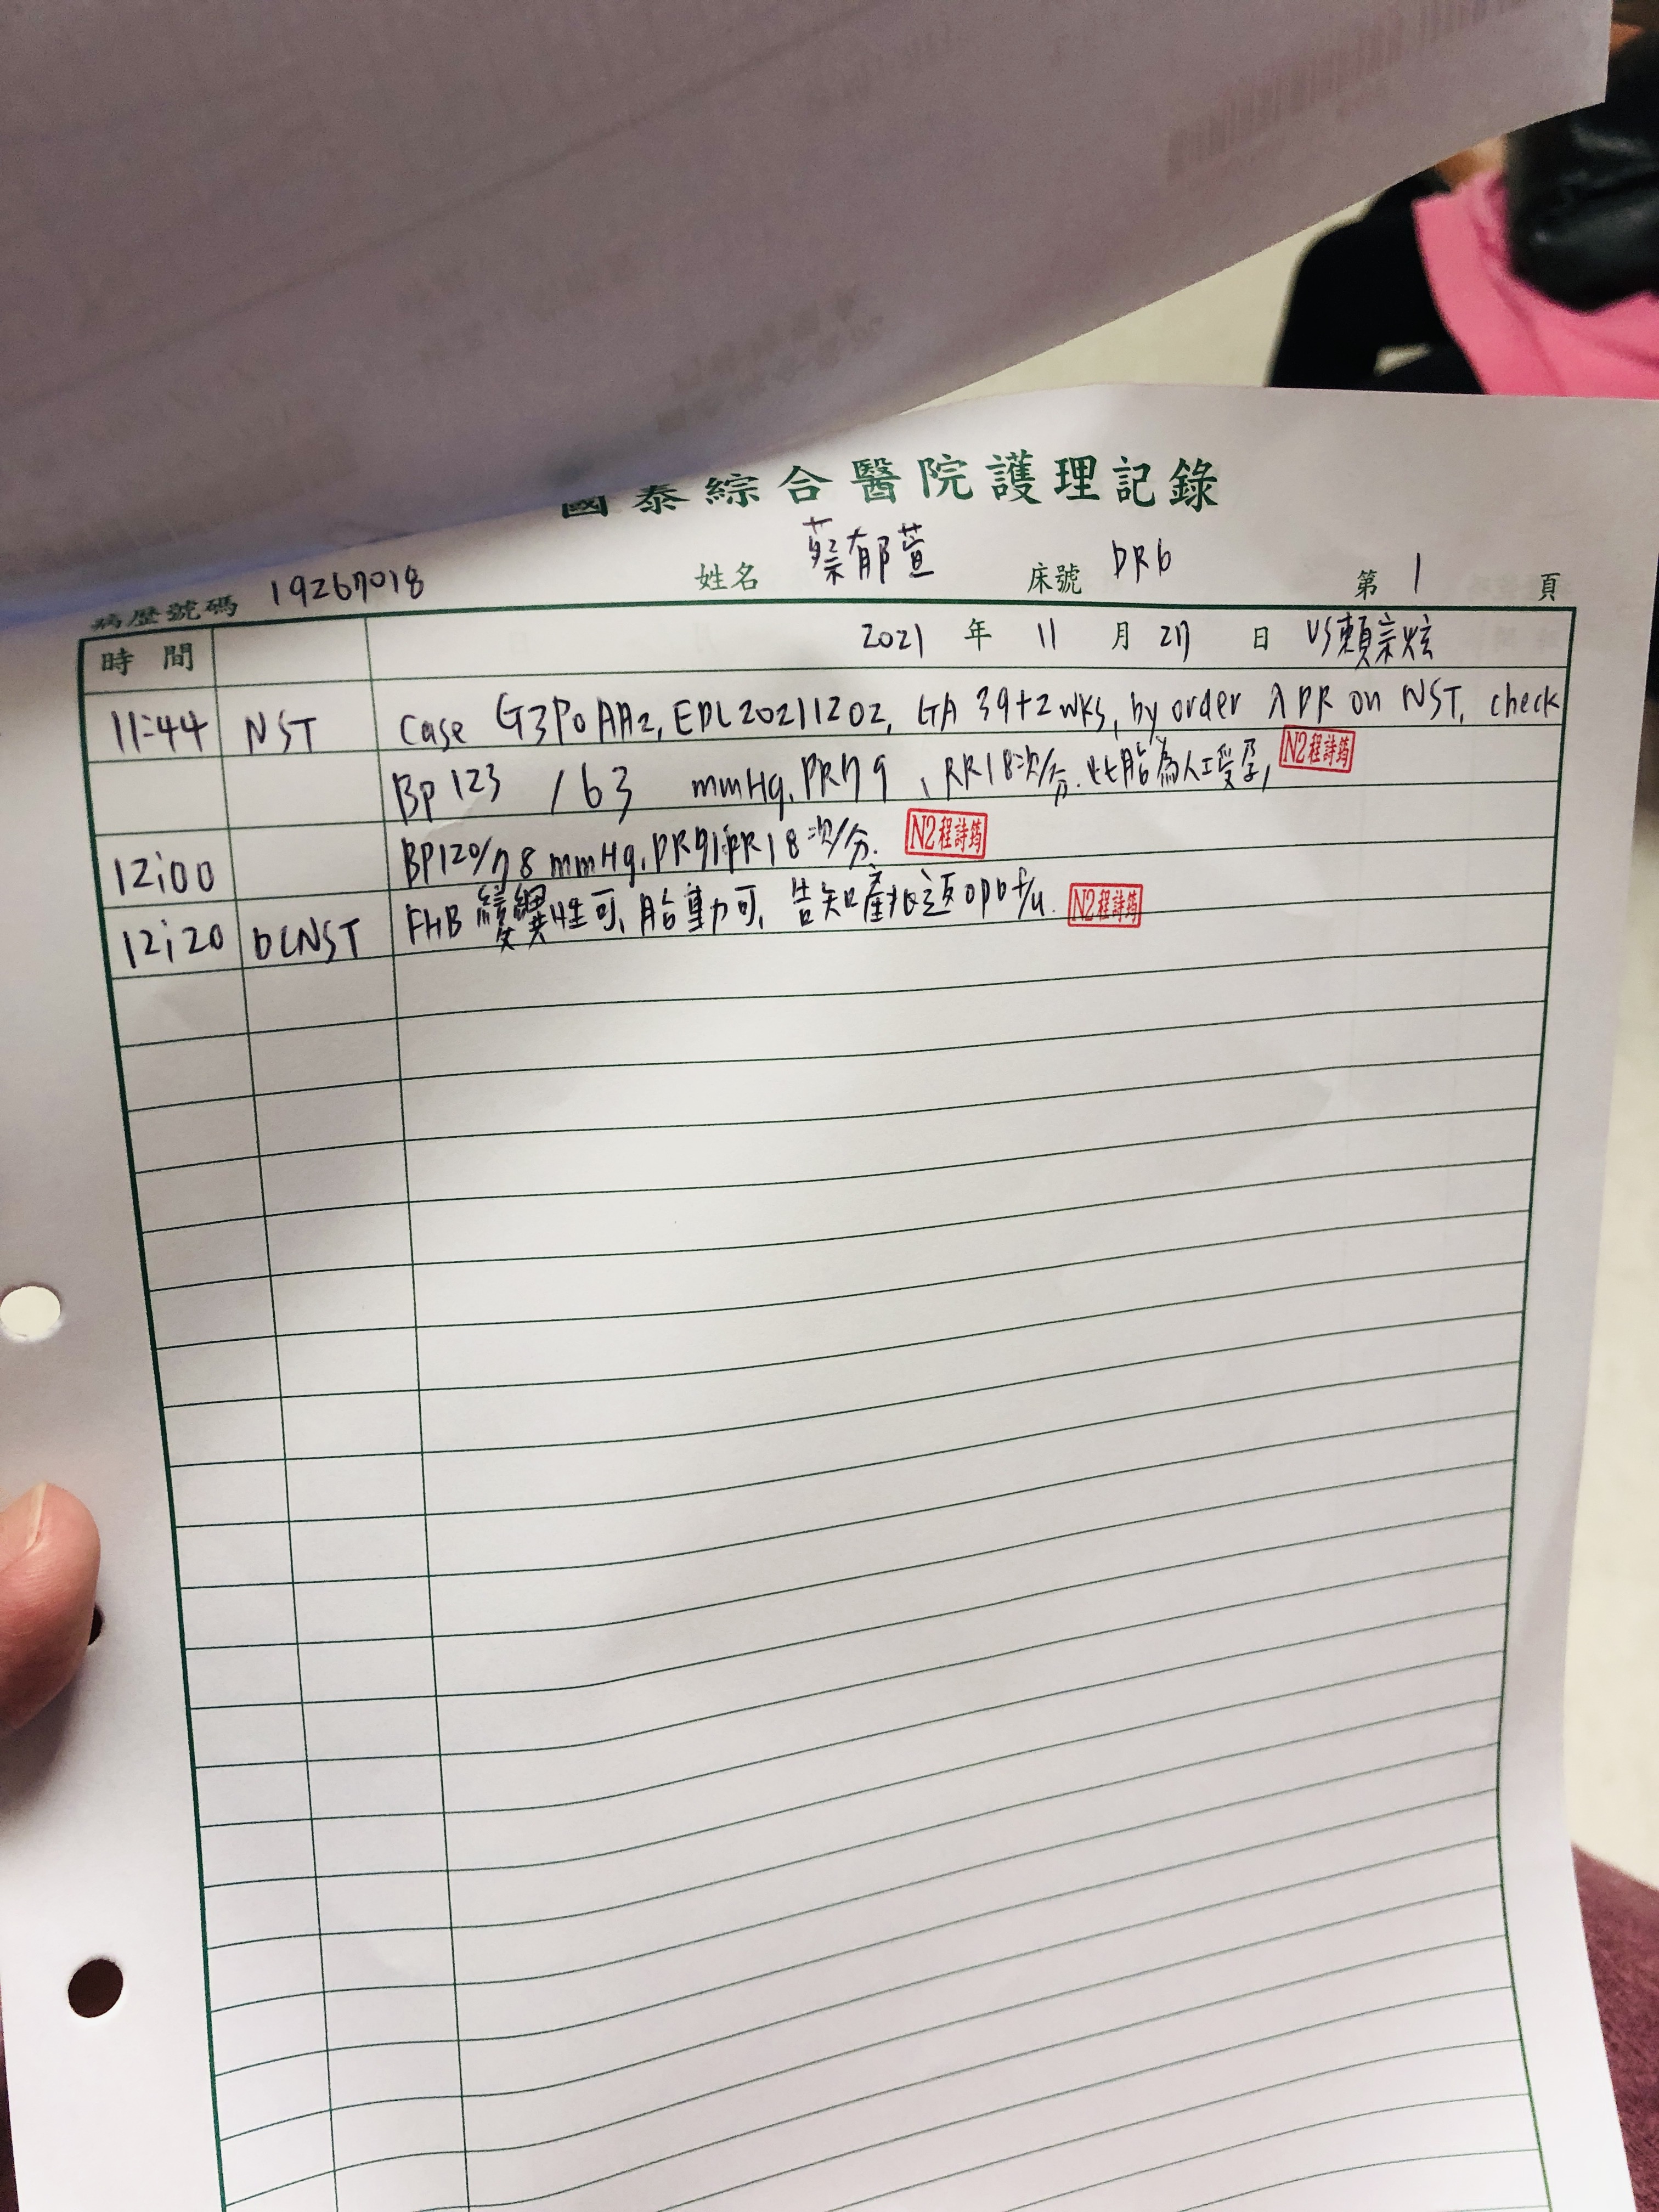 國泰綜合醫院護理記錄
病歷號碼 19267018 姓名 蔡郁萱 床號 DR6 第 1 頁
時間 2021 年 11 月 27 日 VS賴宗炫
11:44 NST Case G3P0AA2, EDC20211202, GA 39+2wks, by order 入DR on NST, check
BP 123 / 63 mmHg, PR79、RR18次/分. 此胎為人工受孕, N2程詩筠
12:00 BP120/78 mmHg, PR91 RR18次/分. N2程詩筠
12:20 DCNST FHB 變異性可, 胎動可, 告知產兆返opd f/u. N2程詩筠